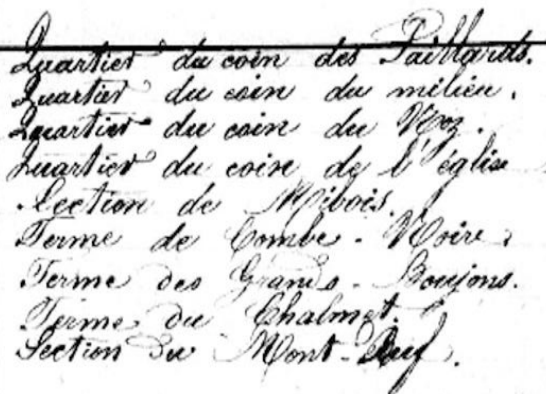 Quartier du coin des Paillards.
Quartier du coin du milieu.
Quartier du coin du Noz.
Quartier du coin de l'église
Section de Mibois.
Ferme de Combe-Noire.
Ferme des Grands-Boujons.
Ferme du Chalmet.
Section du Mont-